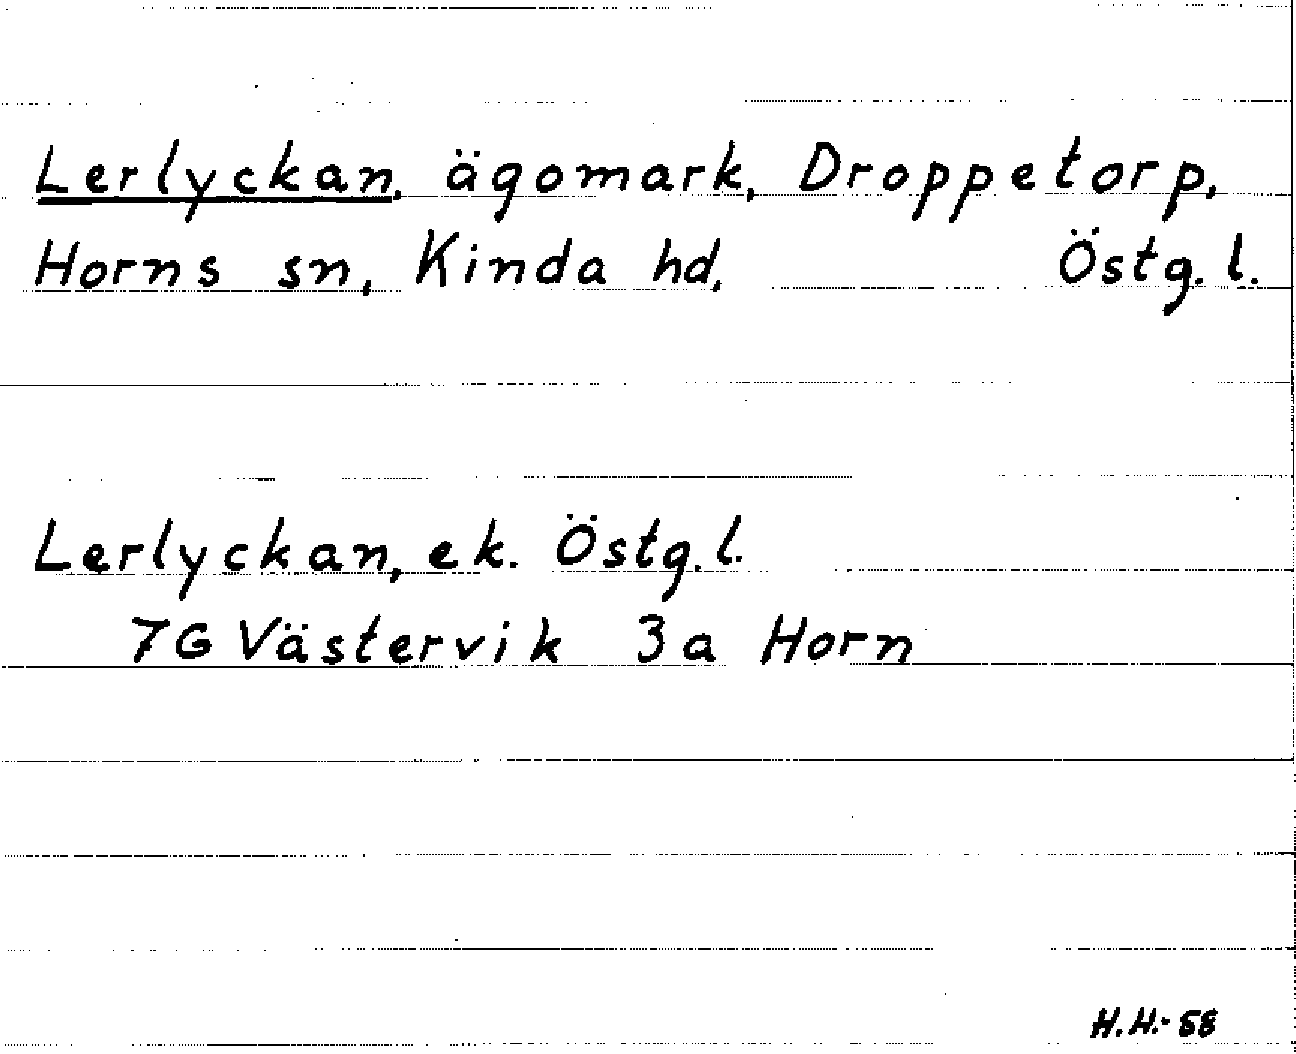 Lerlyckan, ägomark, Droppetorp,
Horns sn, Kinda hd, Östg. l.
Lerlyckan, ek. Östg. l.
7G Västervik 3a Horn
H. H. - 58